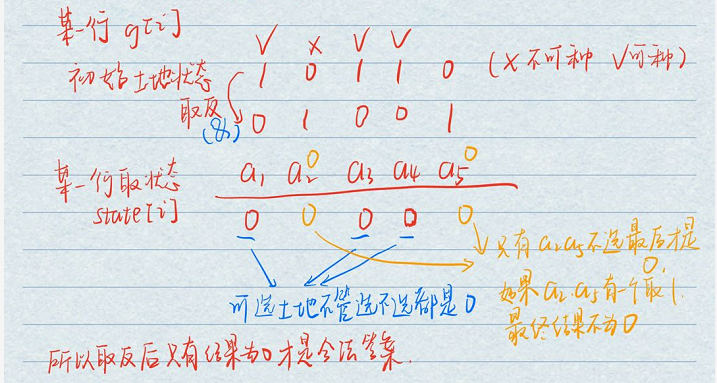 某一行 g[i]
√ × √ √
初始土地状态 1 0 1 1 0 (× 不可种 √可种)
取反 0 1 0 0 1
(&)
某一行取状态 a1 a2 0 a3 a4 a5 0
state[i] 0 0 0 0 0
只有a2a5不选最后才是
0,
如果a2.a5有一个取1.
最终结果不为0
可选土地不管选不选都是0
所以取反后只有结果为0才是合法答案.